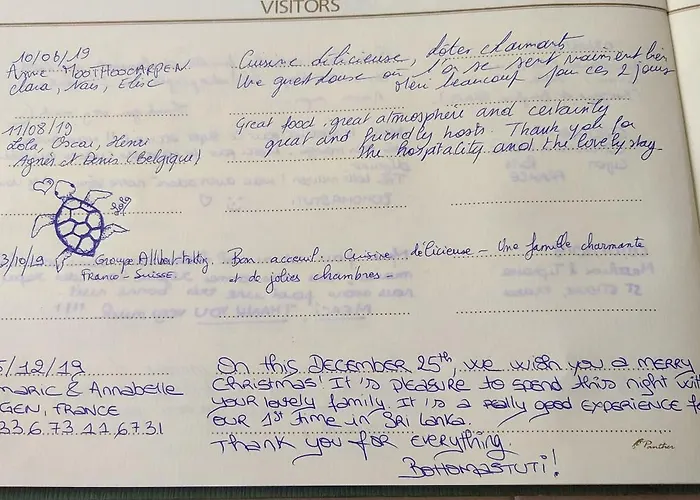 VISITORS
10/06/19
Anne MOOTHOOCARPEN
Clara, Naïs, Elise
Cuisine délicieuse, hôtes charmants
Une guesthouse où l'on se sent vraiment bien
merci beaucoup pour ces 2 jours
11/08/19
Lola, Oscar, Henri
Agnès et Denis (Belgique)
Great food, great atmosphere and certainly
great and friendly hosts. Thank you for
the hospitality and the lovely stay.
Lola
3/10/19 Groupe
France-Suisse.
Bon acceuil. Cuisine délicieuse - Une famille charmante
et de jolies chambres -
5/12/19
maric & Annabelle
GEN, FRANCE
33 6 73 11 67 31
On this DECEMBER 25th, we wish you a MERRY
CHRISTMAS! It's PLEASURE to spend this night wi
YOUR lovely family. It is a really good EXPERIENCE f
OUR 1st time in Sri Lanka.
Thank you for everything.
BOHOMASTUTI!
Panther